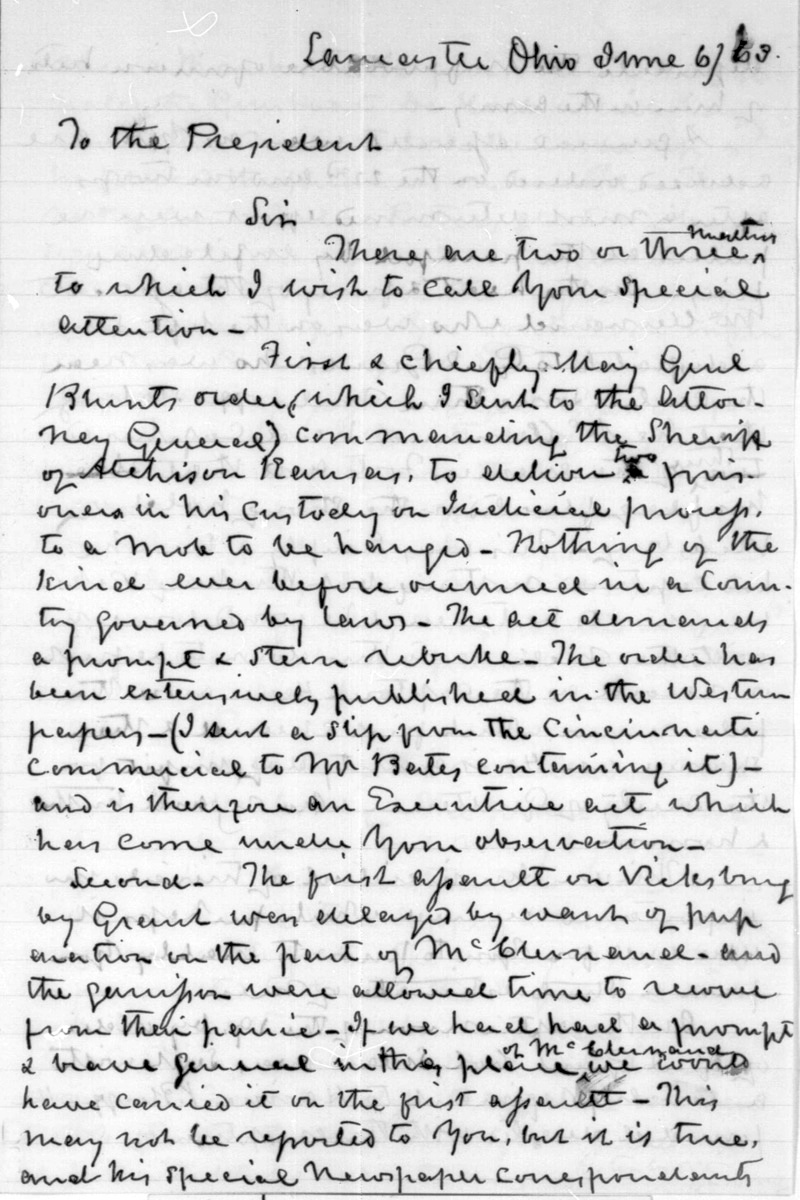 Lancaster Ohio June 6/63.
To the President
Sir
There are two or three matters
to which I wish to call your special
attention -
First & chiefly. Maj Genl
Blunts order, (which I sent to the Attor-
ney General) commanding the Sheriff
of Atchison Kansas, to deliver two pris-
oners in his custody on Judicial process,
to a mob to be hanged - Nothing of the
kind ever before occurred in a Coun-
try governed by laws - The act demands
a prompt & stern rebuke - The order has
been extensively published in the Western
papers - (I sent a slip from the Cincinnati
Commercial to Mr Bates containing it) -
and is therefore an Executive act which
has come under your observation -
Second - The first assault on Vicksburg
by Grant was delayed by want of prep
aration on the part of McClernand - and
the garrison were allowed time to recover
from their panic - If we had had a prompt
& brave general in the place of McClernand we would
have carried it on the first assault - This
may not be reported to you, but it is true,
and his special Newspaper correspondents